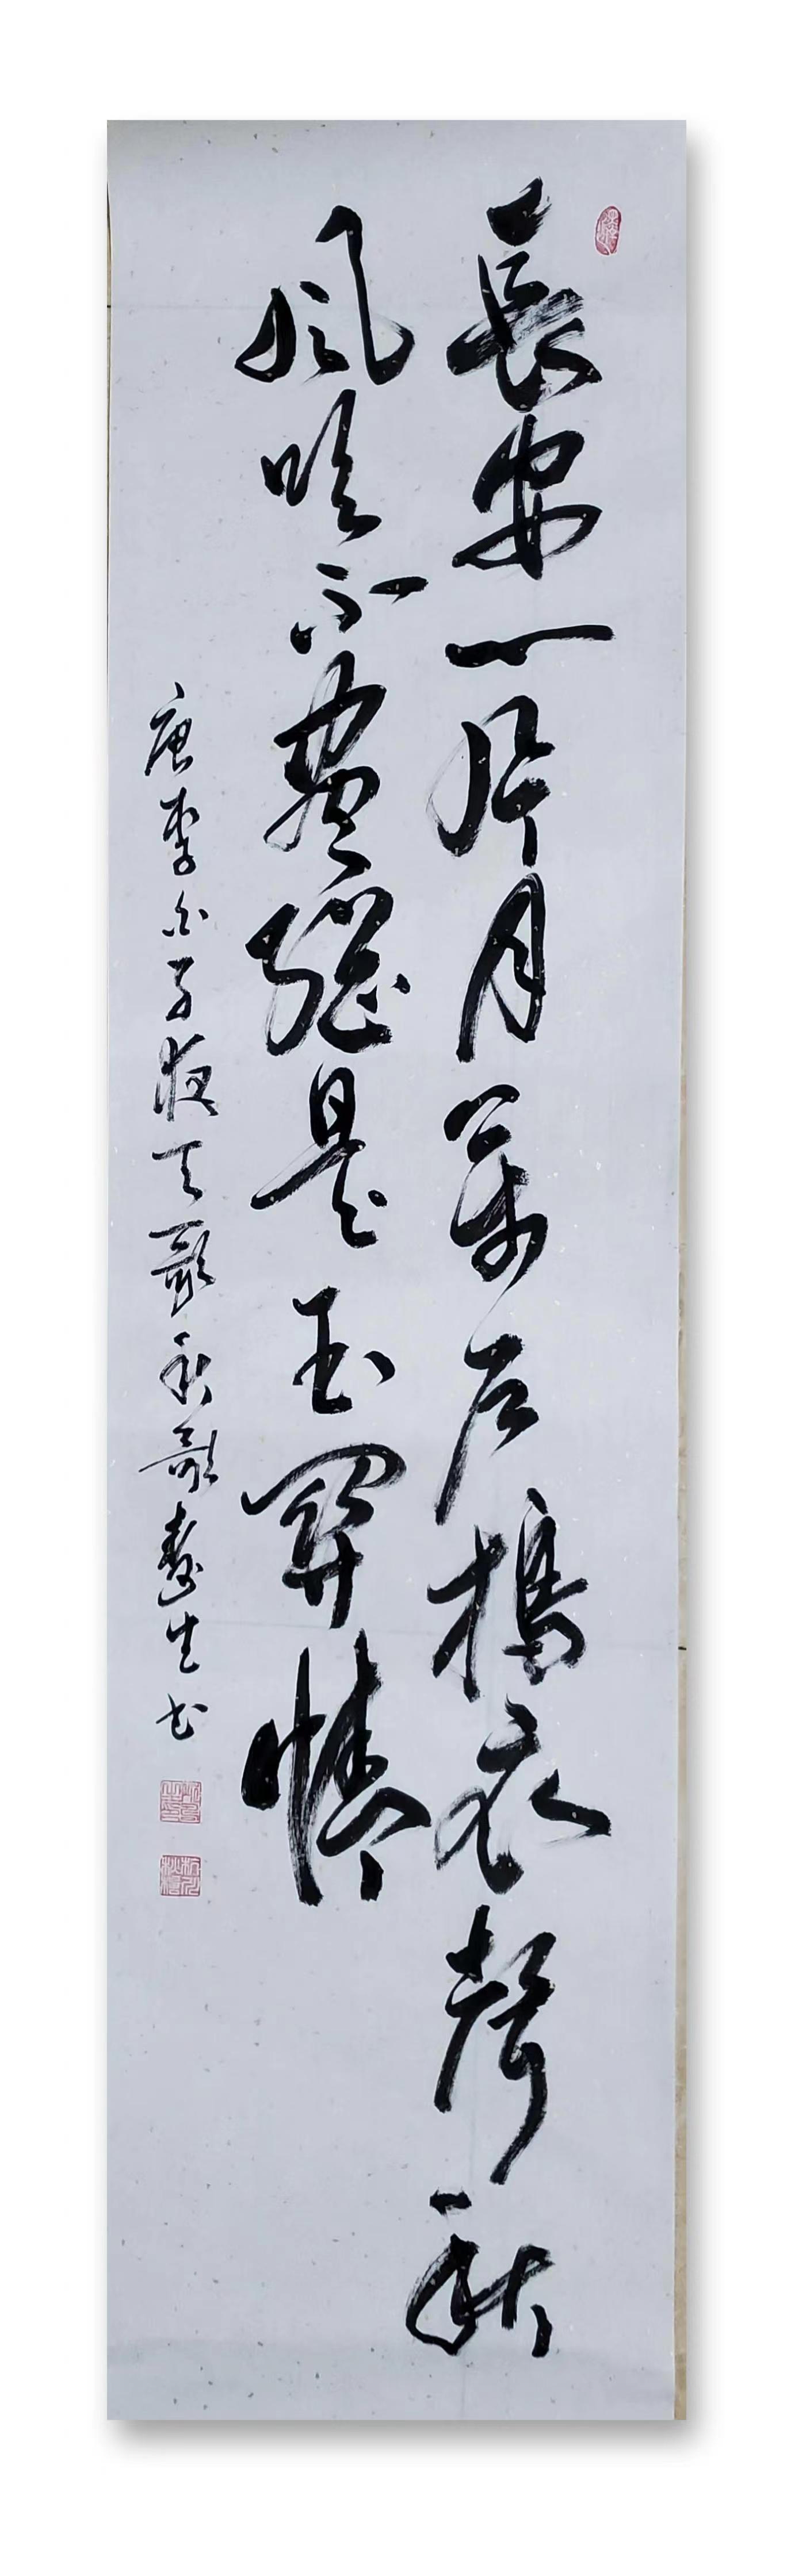 長安一片月萬戶擣衣聲秋
風吹不盡總是玉關情
唐李白子夜吳歌秋歌 生书